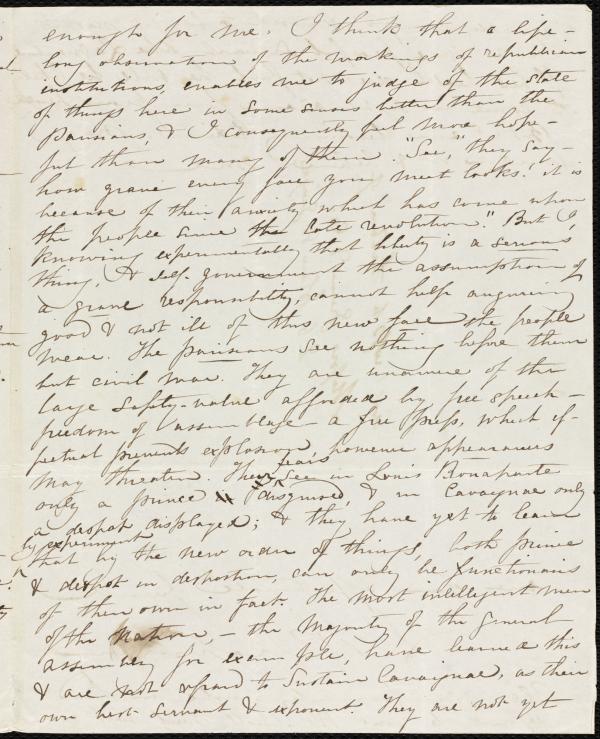 enough for me. I think that a life-
long observation of the workings of republican
institutions, enables me to judge of the state
of things here in some senses better than the
Parisians, & I consequently feel more hope-
ful than many of them. "See," they say -
how grave every face you meet looks! it is
because of their anxiety which has come upon
the people since the late revolution." But I,
knowing experimentally that liberty is a serious
thing, & self-government the assumption of
a grave responsibility, cannot help auguring
good & not ill of this new face the people
wear. The Parisians see nothing before them
but civil war. They are unaware of the
large safety-valve afforded by free speech -
freedom of assemblage - a free press, which ef-
fectual prevents explosion, however appearances
may threaten. Their fears see in Louis Bonaparte
only a prince disguised, & in Cavaignac only
a despot displayed; & they have yet to learn
by experiment
that by the new order of things, both prince
& despot in disposition, can only be functionaries
of their own in fact. The most intelligent men
of the Nation, - the majority of the general
assembly for example, have learned this
& are not afraid to sustain Cavaignac, as their
own best servant & exponent. They are not yet